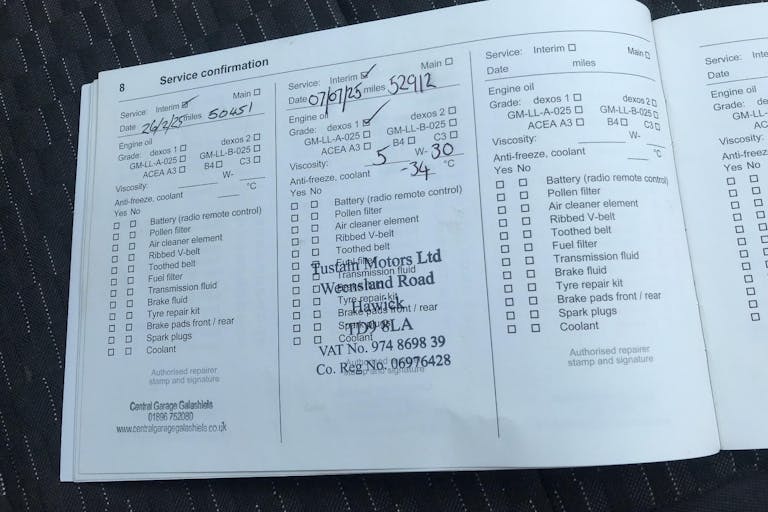 8 Service confirmation
Service: Interim ☑ Main ☐
Date 26/2/25 miles 50451
Engine oil
Grade: dexos 1 ☐ dexos 2 ☐
GM-LL-A-025 ☐ GM-LL-B-025 ☐
ACEA A3 ☐ B4 ☐ C3 ☐
Viscosity: W-
Anti-freeze, coolant °C
Yes No
☐ ☐ Battery (radio remote control)
☐ ☐ Pollen filter
☐ ☐ Air cleaner element
☐ ☐ Ribbed V-belt
☐ ☐ Toothed belt
☐ ☐ Fuel filter
☐ ☐ Transmission fluid
☐ ☐ Brake fluid
☐ ☐ Tyre repair kit
☐ ☐ Brake pads front / rear
☐ ☐ Spark plugs
☐ ☐ Coolant
Authorised repairer
stamp and signature
Central Garage Galashiels
01896 752080
www.centralgaragegalashiels.co.uk
Service: Interim ☑ Main ☐
Date 07/07/25 miles 52912
Engine oil
Grade: dexos 1 ☑ dexos 2 ☐
GM-LL-A-025 ☐ GM-LL-B-025 ☐
ACEA A3 ☐ B4 ☐ C3 ☐
Viscosity: 5 W- 30
Anti-freeze, coolant -34 °C
Yes No
☐ ☐ Battery (radio remote control)
☐ ☐ Pollen filter
☐ ☐ Air cleaner element
☐ ☐ Ribbed V-belt
☐ ☐ Toothed belt
☐ ☐ Fuel filter
☐ ☐ Transmission fluid
☐ ☐ Brake fluid
☐ ☐ Tyre repair kit
☐ ☐ Brake pads front / rear
☐ ☐ Spark plugs
☐ ☐ Coolant
Authorised repairer
stamp and signature
Tustain Motors Ltd
Weensland Road
Hawick
TD9 8LA
VAT No. 974 8698 39
Co. Reg No. 06976428
Service: Interim ☐ Main ☐
Date miles
Engine oil
Grade: dexos 1 ☐ dexos 2 ☐
GM-LL-A-025 ☐ GM-LL-B-025 ☐
ACEA A3 ☐ B4 ☐ C3 ☐
Viscosity: W-
Anti-freeze, coolant °C
Yes No
☐ ☐ Battery (radio remote control)
☐ ☐ Pollen filter
☐ ☐ Air cleaner element
☐ ☐ Ribbed V-belt
☐ ☐ Toothed belt
☐ ☐ Fuel filter
☐ ☐ Transmission fluid
☐ ☐ Brake fluid
☐ ☐ Tyre repair kit
☐ ☐ Brake pads front / rear
☐ ☐ Spark plugs
☐ ☐ Coolant
Authorised repairer
stamp and signature
Service:
Date
Engine oil
Grade:
GM-LL-
ACEA
Viscosity:
Anti-freeze
Yes No